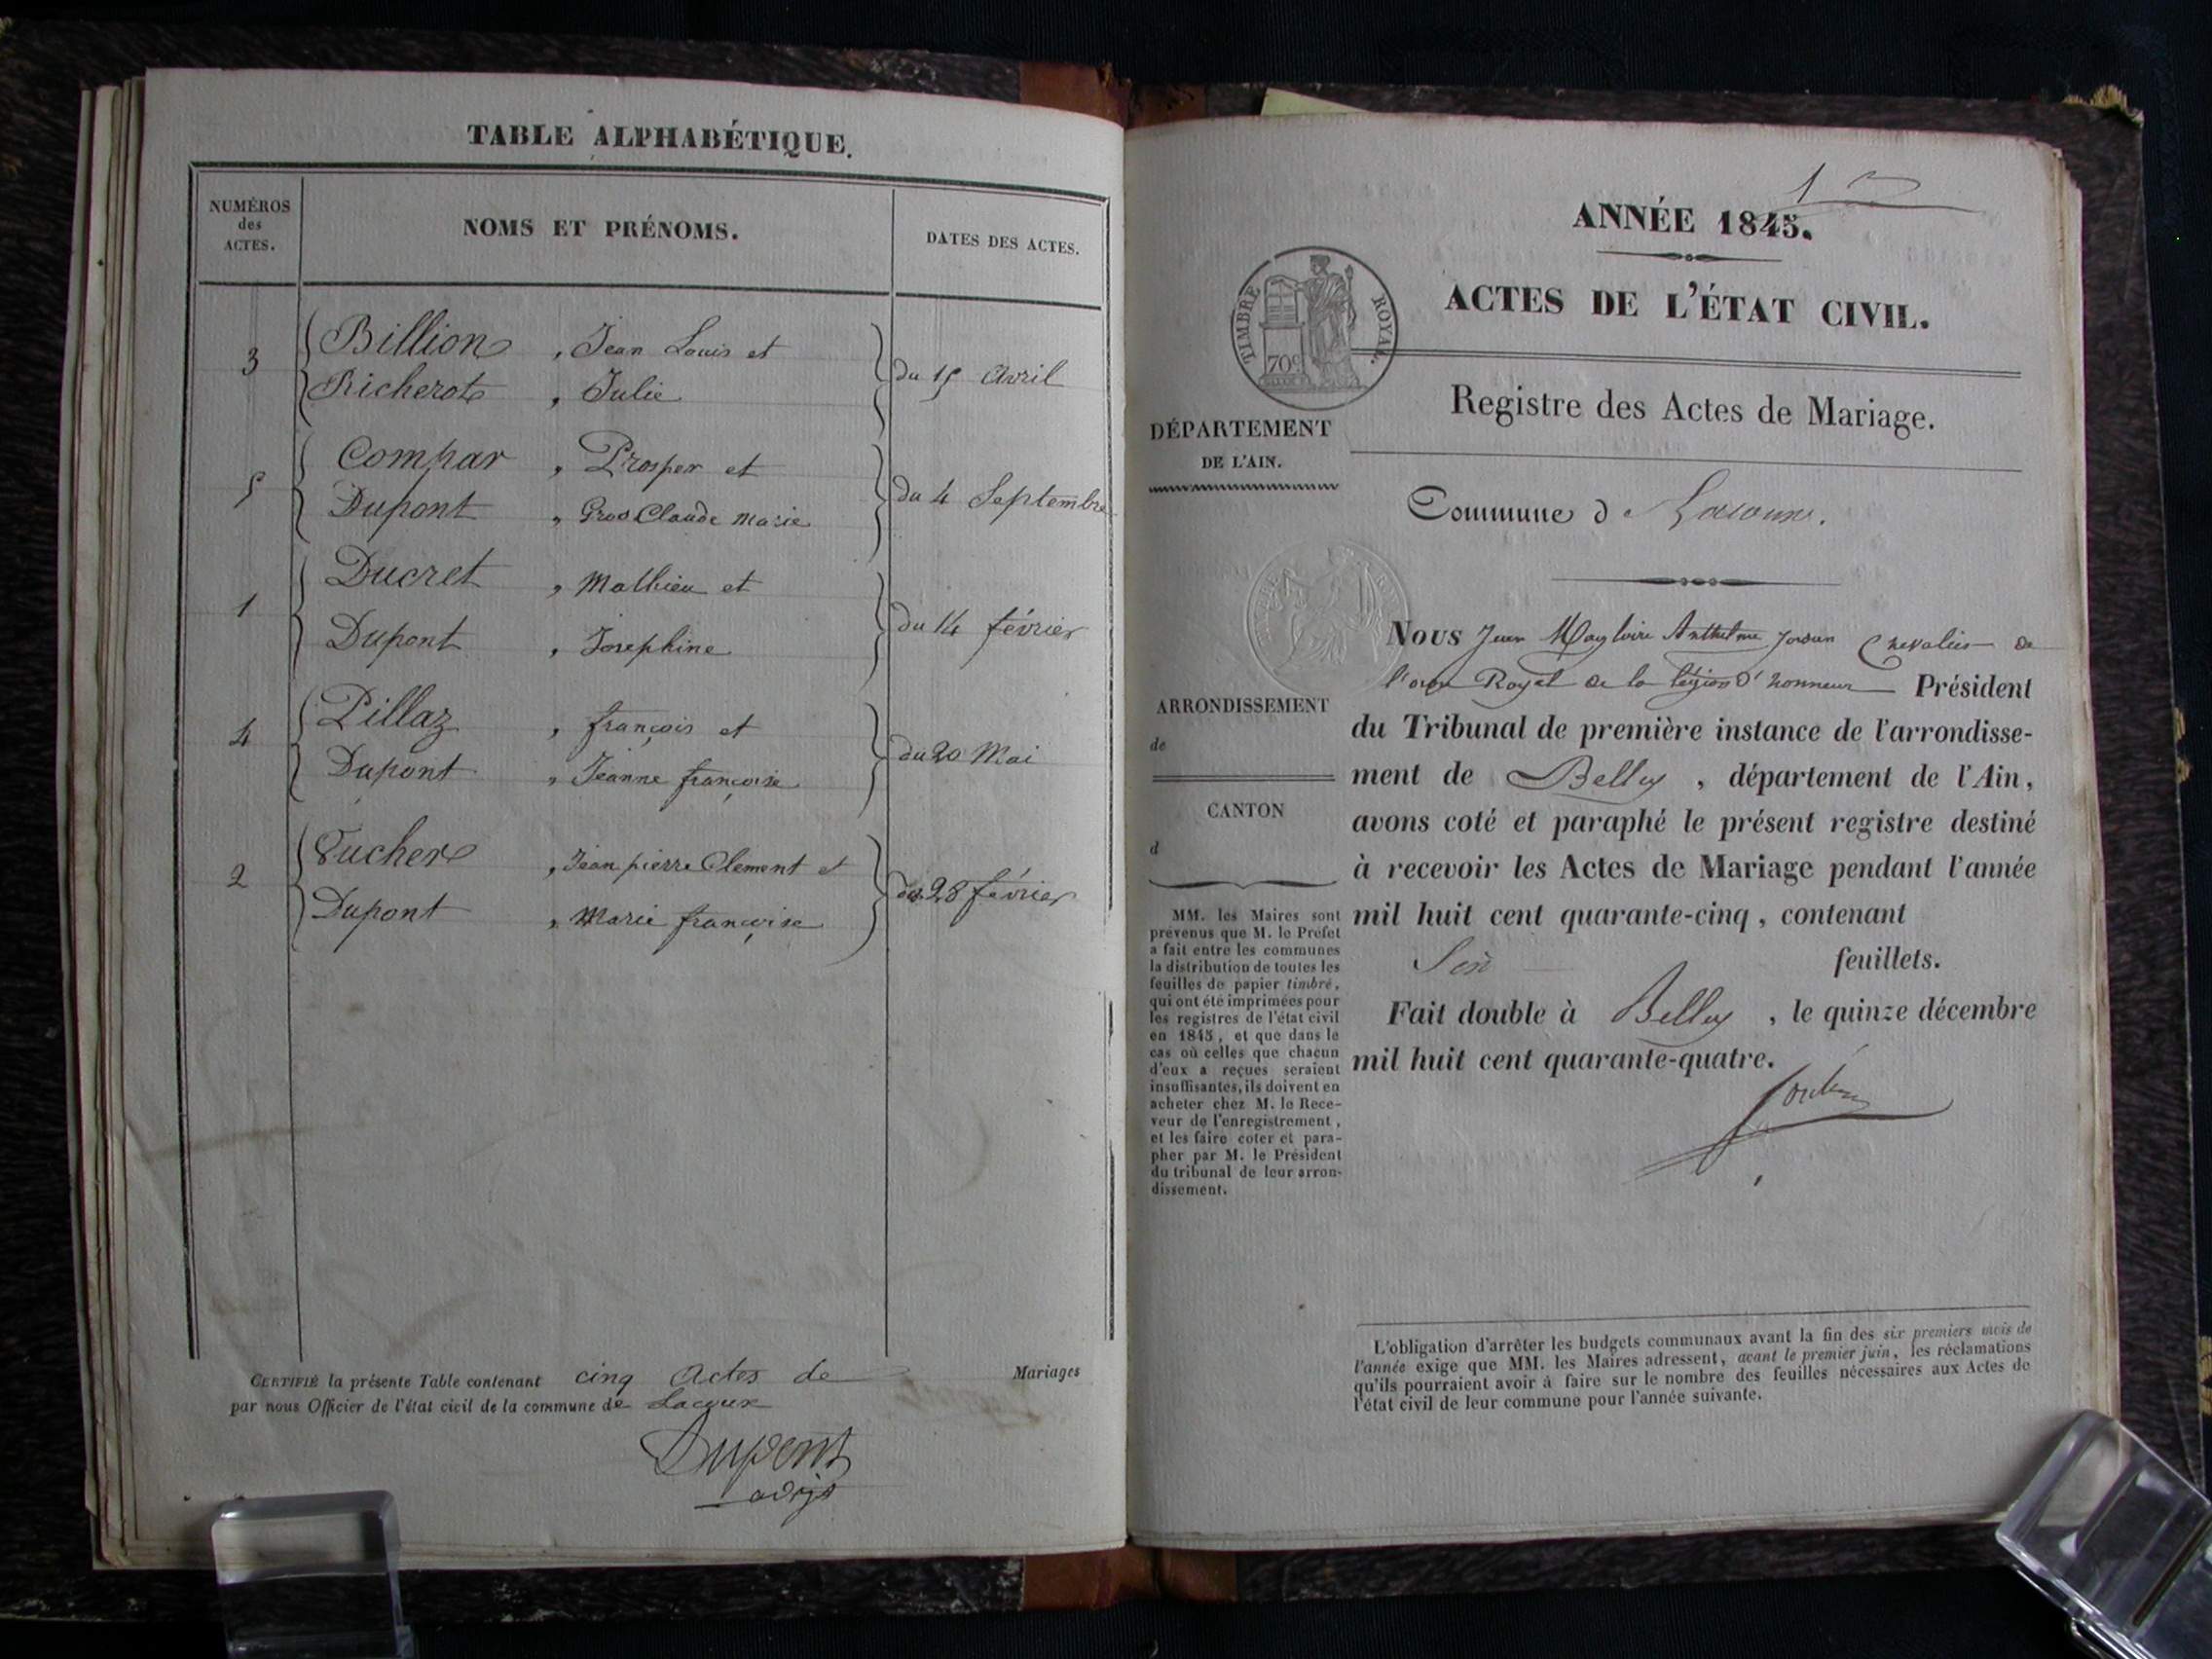 TABLE ALPHABÉTIQUE.
NUMÉROS
des
ACTES.
NOMS ET PRÉNOMS.
DATES DES ACTES.
3
Billion , Jean Louis et
Richerot , Julie
du 15 Avril
5
Compar , Prosper et
Dupont , Claude Marie
du 4 Septembre
1
Ducret , Mathieu et
Dupont , Josephine
du 14 février
4
Pillaz , françois et
Dupont , Jeanne françoise
du 20 Mai
2
Tucher , Jean pierre Clement et
Dupont , Marie françoise
du 28 février
CERTIFIÉ la présente Table contenant cinq Actes de Mariages
par nous Officier de l'état civil de la commune de Lacoux
Dupont
adjt
1
ANNÉE 1845.
ACTES DE L'ÉTAT CIVIL.
TIMBRE ROYAL.
70c
Registre des Actes de Mariage.
DÉPARTEMENT
DE L'AIN.
Commune d
Nous Jean Magloire Anthelme Chevalier de
l'ordre Royal de la légion d'honneur Président
du Tribunal de première instance de l'arrondisse-
ment de Belley , département de l'Ain,
avons coté et paraphé le présent registre destiné
à recevoir les Actes de Mariage pendant l'année
mil huit cent quarante-cinq , contenant
Six feuillets.
Fait double à Belley , le quinze décembre
mil huit cent quarante-quatre.
ARRONDISSEMENT
de
CANTON
d
MM. les Maires sont
prévenus que M. le Préfet
a fait entre les communes
la distribution de toutes les
feuilles de papier timbré,
qui ont été imprimées pour
les registres de l'état civil
en 1845, et que dans le
cas où celles que chacun
d'eux a reçues seraient
insuffisantes, ils doivent en
acheter chez M. le Rece-
veur de l'enregistrement,
et les faire coter et para-
pher par M. le Président
du tribunal de leur arron-
dissement.
L'obligation d'arrêter les budgets communaux avant la fin des six premiers mois de
l'année exige que MM. les Maires adressent, avant le premier juin, les réclamations
qu'ils pourraient avoir à faire sur le nombre des feuilles nécessaires aux Actes de
l'état civil de leur commune pour l'année suivante.